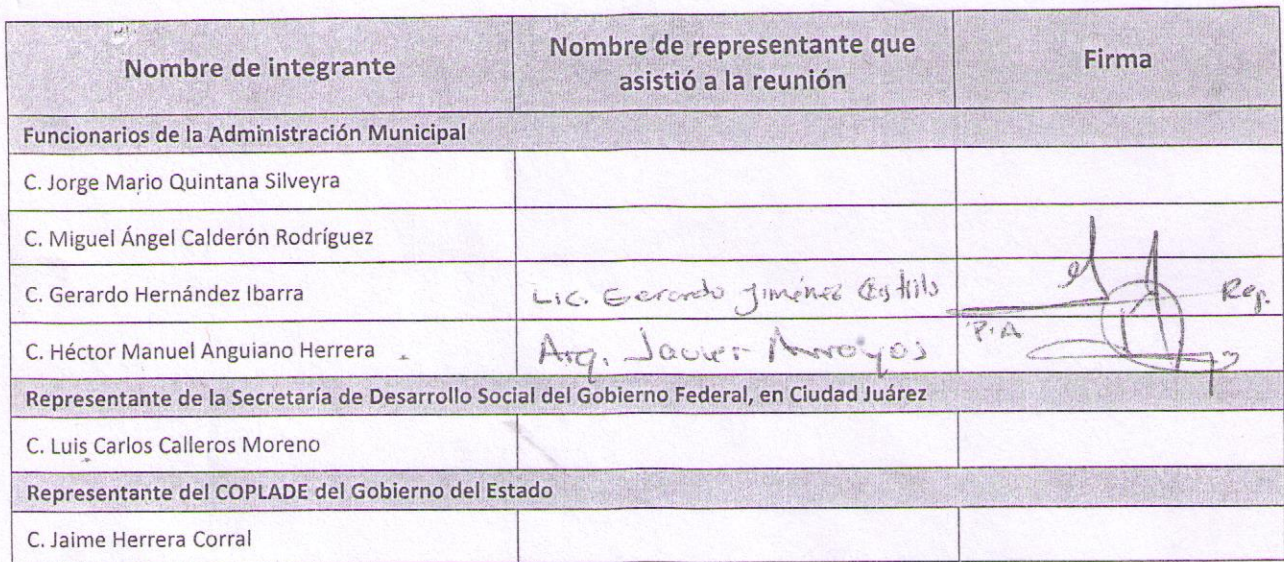 Nombre de integrante
Nombre de representante que
asistió a la reunión
Firma
Funcionarios de la Administración Municipal
C. Jorge Mario Quintana Silveyra
C. Miguel Ángel Calderón Rodríguez
C. Gerardo Hernández Ibarra
Lic. Gerardo Jiménez Castillo
Rep.
C. Héctor Manuel Anguiano Herrera
Arq. Javier Arroyos
P.A
Representante de la Secretaría de Desarrollo Social del Gobierno Federal, en Ciudad Juárez
C. Luis Carlos Calleros Moreno
Representante del COPLADE del Gobierno del Estado
C. Jaime Herrera Corral